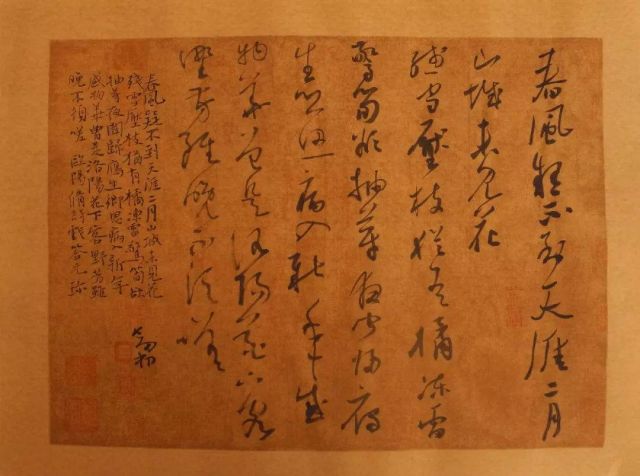 春風疑不到天涯二月
山城未見花
殘雪壓枝猶有橘凍雷
驚筍欲抽芽夜聞歸雁
生鄉思病入新年感
物華曾是洛陽花下客
野芳雖晚不須嗟
春風疑不到天涯二月山城未見花
殘雪壓枝猶有橘凍雷驚筍欲
抽芽夜聞歸鴈生鄉思病入新年
感物華曾是洛陽花下客野芳雖
晚不須嗟 歐陽脩詩戲答元珍